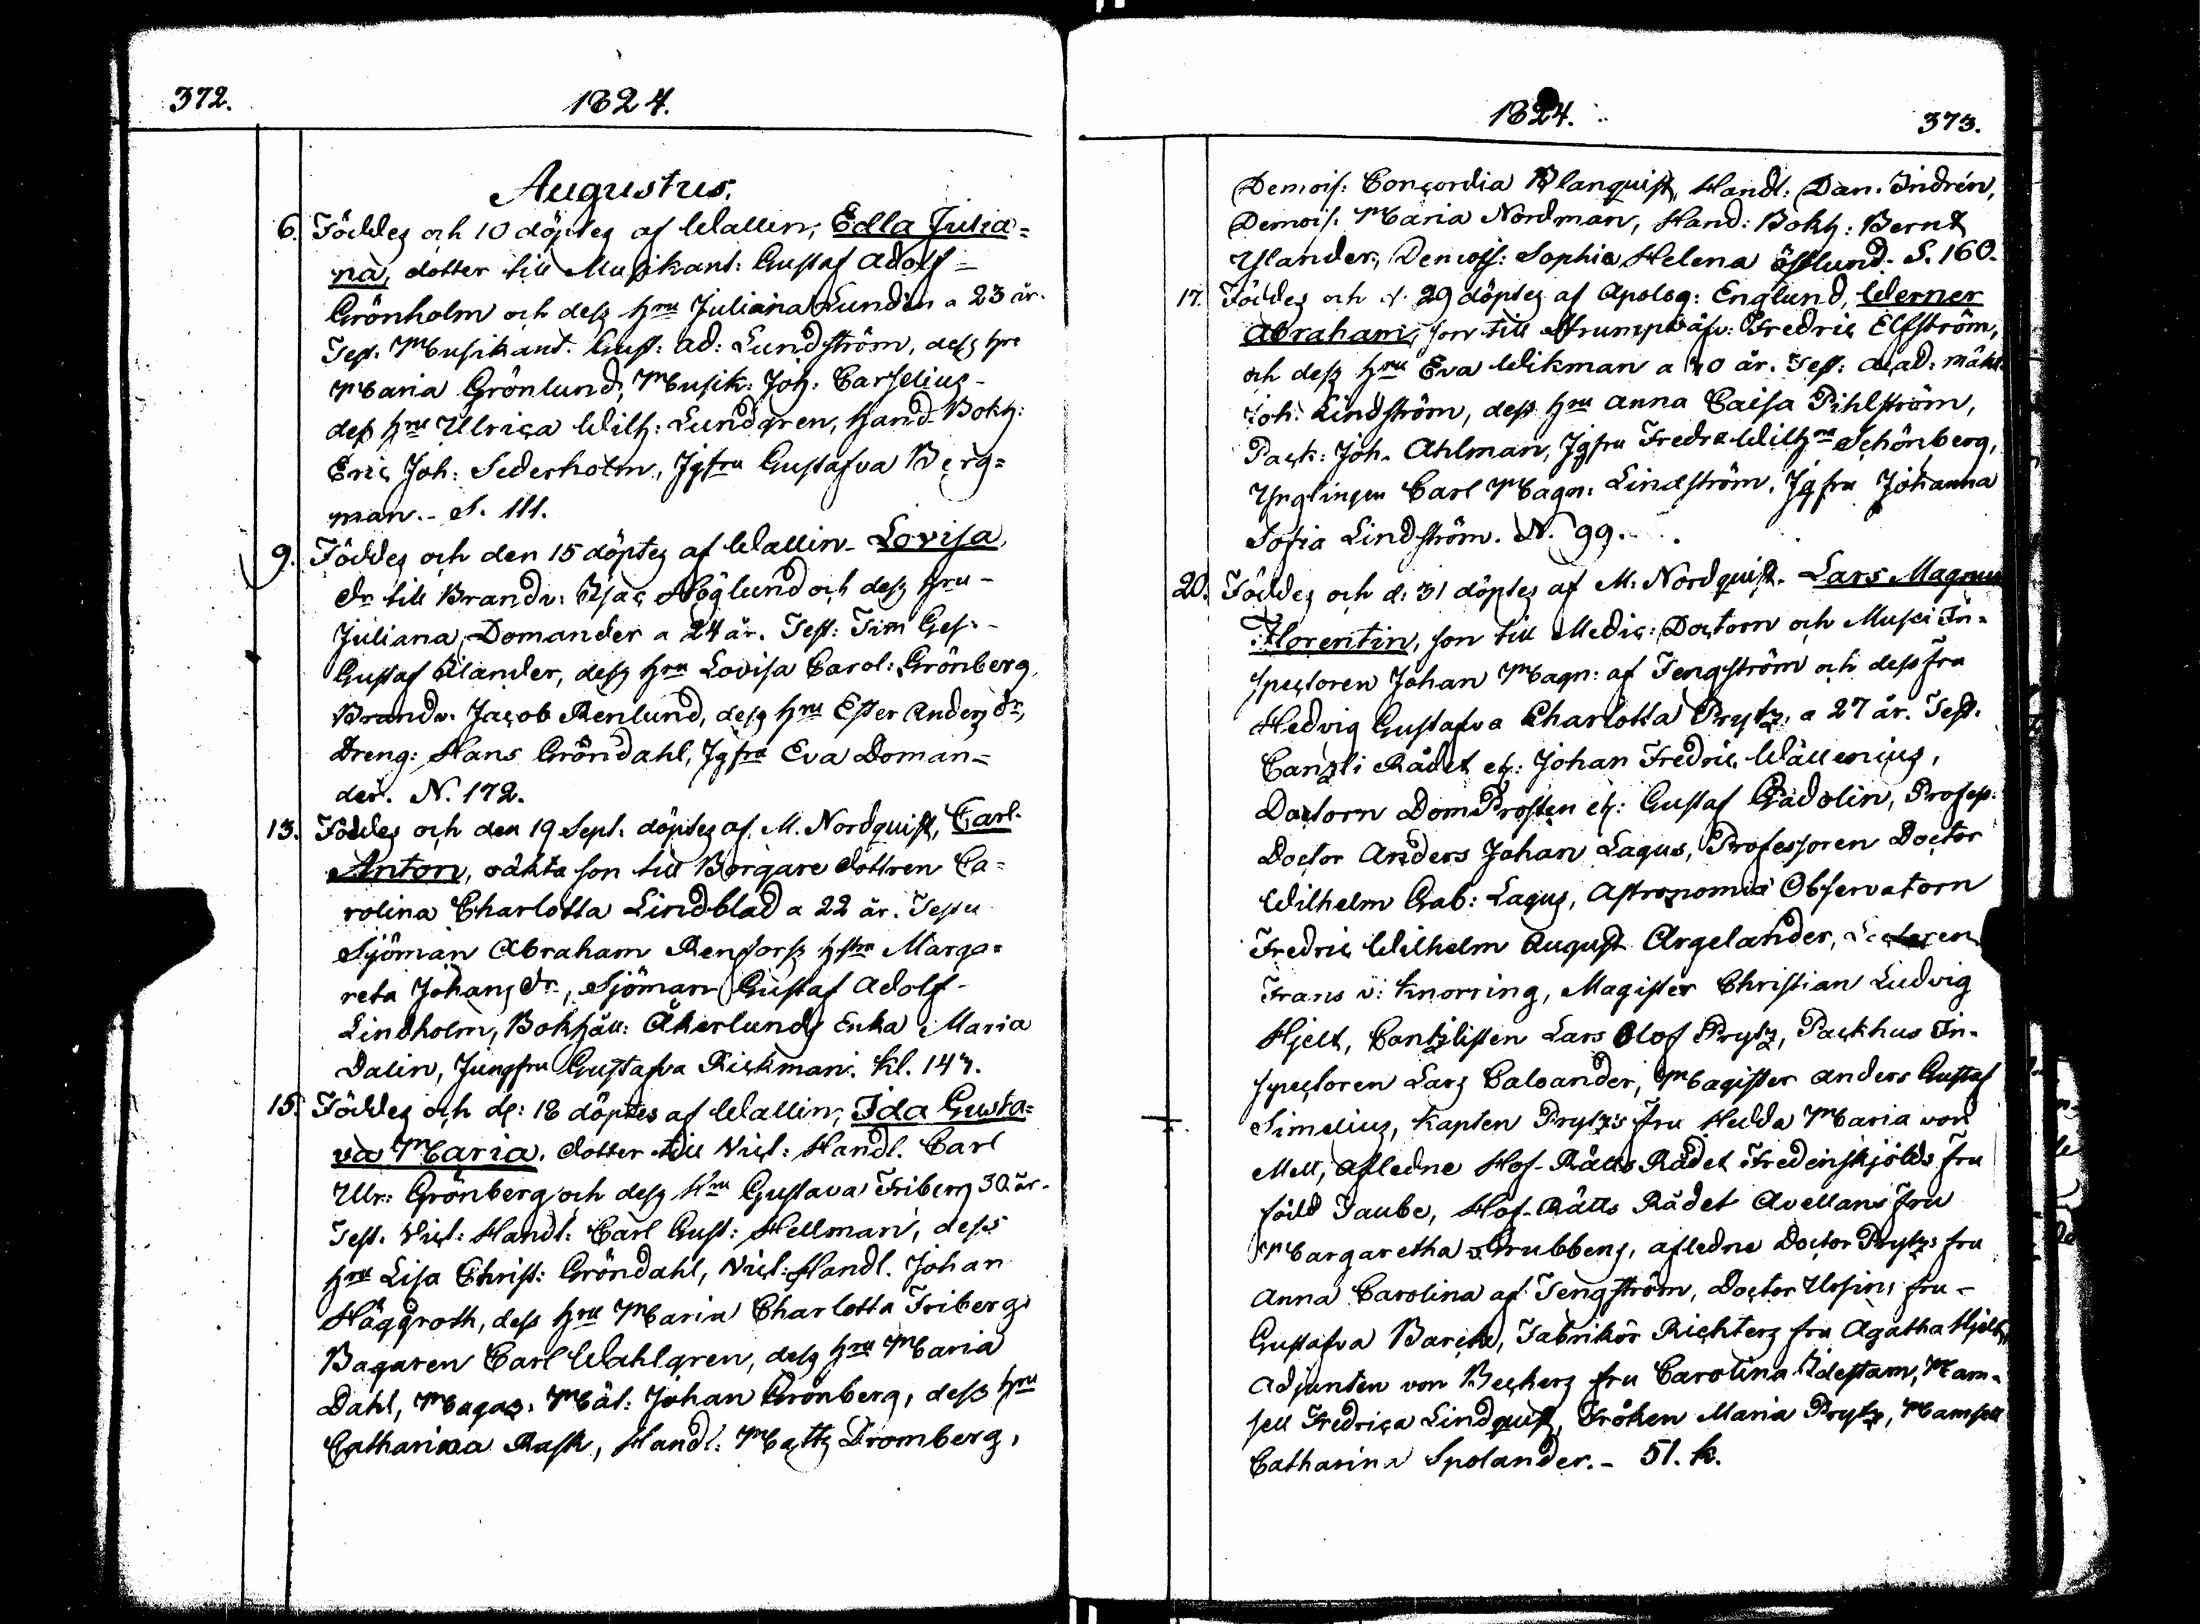 372.
1824.
Augustus.
6. Föddes och 10 döptes af Wallin, Edla Julia=
na, dotter till Musikant: Gustaf Adolf=
Grönholm och dess hru Juliana Lundin a 23 år.
Test. Musikant. Gust: Ad: Lundström, dess hru
Maria Grönlund, Musik: Joh: Carselius-
dess hru Ulrica Wilh: Lundgren, Hand. Bokh:
Eric Joh: Sederholm, Jgfru Gustafva Berg=
man.- S. 111.
9. Föddes och den 15 döptes af Wallin- Lovisa,
dr till Brandv: Isac Höglund och dess hru-
Juliana Domander a 24 år. Test: Tim Ges:-
Gustaf Ilander, dess hru Lovisa Carol: Grönberg,
Brandv. Jacob Renlund, dess hru Ester Anders dr,
Dreng: Hans Gröndahl, Jgfru Eva Doman=
der. N. 172.
13. Föddes och den 19 Sept. döptes af M. Nordquist, Carl-
Anton, oäkta son till Borgare dottren Ca=
rolina Charlotta Lindblad a 22 år. Testu
Sjöman Abraham Renfors hstru Marga=
reta Johans dr., Sjöman Gustaf Adolf-
Lindholm, Bokhåll: Åkerlunds Enka Maria
Dalin, Jungfru Gustafva Rickman. Kl. 147.
15. Föddes och d: 18 döptes af Wallin, Ida Gusta=
va Maria. dotter till Vict: Handl. Carl
Ulr: Grönberg och dess Hru Gustava Friberg 30 år.
Test. Vict: Handl: Carl Gust: Hellman, dess
hru Lisa Christ: Gröndahl, Vict: Handl. Johan
Häggroth, dess hru Maria Charlotta Friberg,
Bagaren Carl Wahlgren, dess hru Maria
Dahl, Magaz. Mät: Johan Grönberg, dess hru
Catharina Rask, Handl: Matts Bromberg,
1824.
373.
Demois: Concordia Blanquist, Handl: Dan. Indrén,
Demois. Maria Nordman, Hand: Bokh: Bernt
Ylander, Demois: Sophia Helena Östlund. S. 160.
17. Föddes och d. 29 döptes af Apolog: Englund, Werner
Abraham, son till Strumpväfv: Fredric Elfström,
och dess hru Eva Wikman a 40 år. Test: Acad: mäkl.
Joh: Lindström, dess hru Anna Caisa Pihlström,
Pack: Joh. Ahlman, Jgfru Fredr. Wilhna Schönberg,
Ynglingen Carl Magn: Lindström, Jgfru Johanna
Sofia Lindström. N. 99.
20. Föddes och d. 31 döptes af M. Nordquist. Lars Magnus
Florentin, son till Medic: Doctorn och Musei In-
spectoren Johan Magn: af Tengström och dess fru
Hedvig Gustafva Charlotta Prytz, a 27 år. Test.
Canzli Rådet etc: Johan Fredric Wallenius,
Doctorn DomProsten etc: Gustaf Gadolin, Profess.
Doctor Anders Johan Lagus, Professoren Doctor
Wilhelm Gab: Lagus, Astronomiæ Observatorn
Fredric Wilhelm August Argelander, Lectoren
Frans v: Knorring, Magister Christian Ludvig
Hjelt, Cantzlisten Lars Olof Prytz, Packhus In-
spectoren Lars Caloander, Magister Anders Gustaf
Simelius, Kapten Prytz's fru Hedda Maria von
Mell, Afledne Hof-Rätts Rådet Fredenskjölds fru
född Taube, Hof-Rätts Rådet Avellans fru
Margaretha v. Grubbens, afledne Doctor Prytzs fru
Anna Carolina af Tengström, Doctor Ursins fru-
Gustafva Barck, Fabrikör Richters fru Agatha Hjelt,
Adjunten von Beckers fru Carolina Idestam, Mam-
sell Fredrica Lindquist, Fröken Maria Prytz, Mamsell
Catharina Spolander.- 51. k.